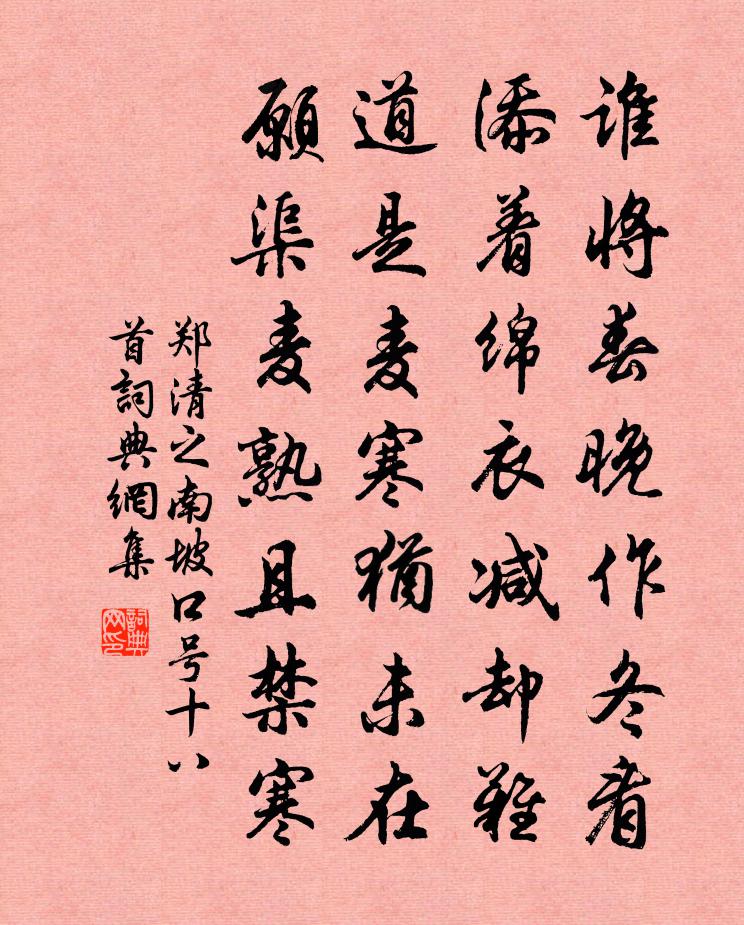 谁将春晚作冬看
添着绵衣减却難
道是麦寒猶未在
願渠麦熟且禁寒
郑清之南坡口号十八
首詞典網集
詞典
网印